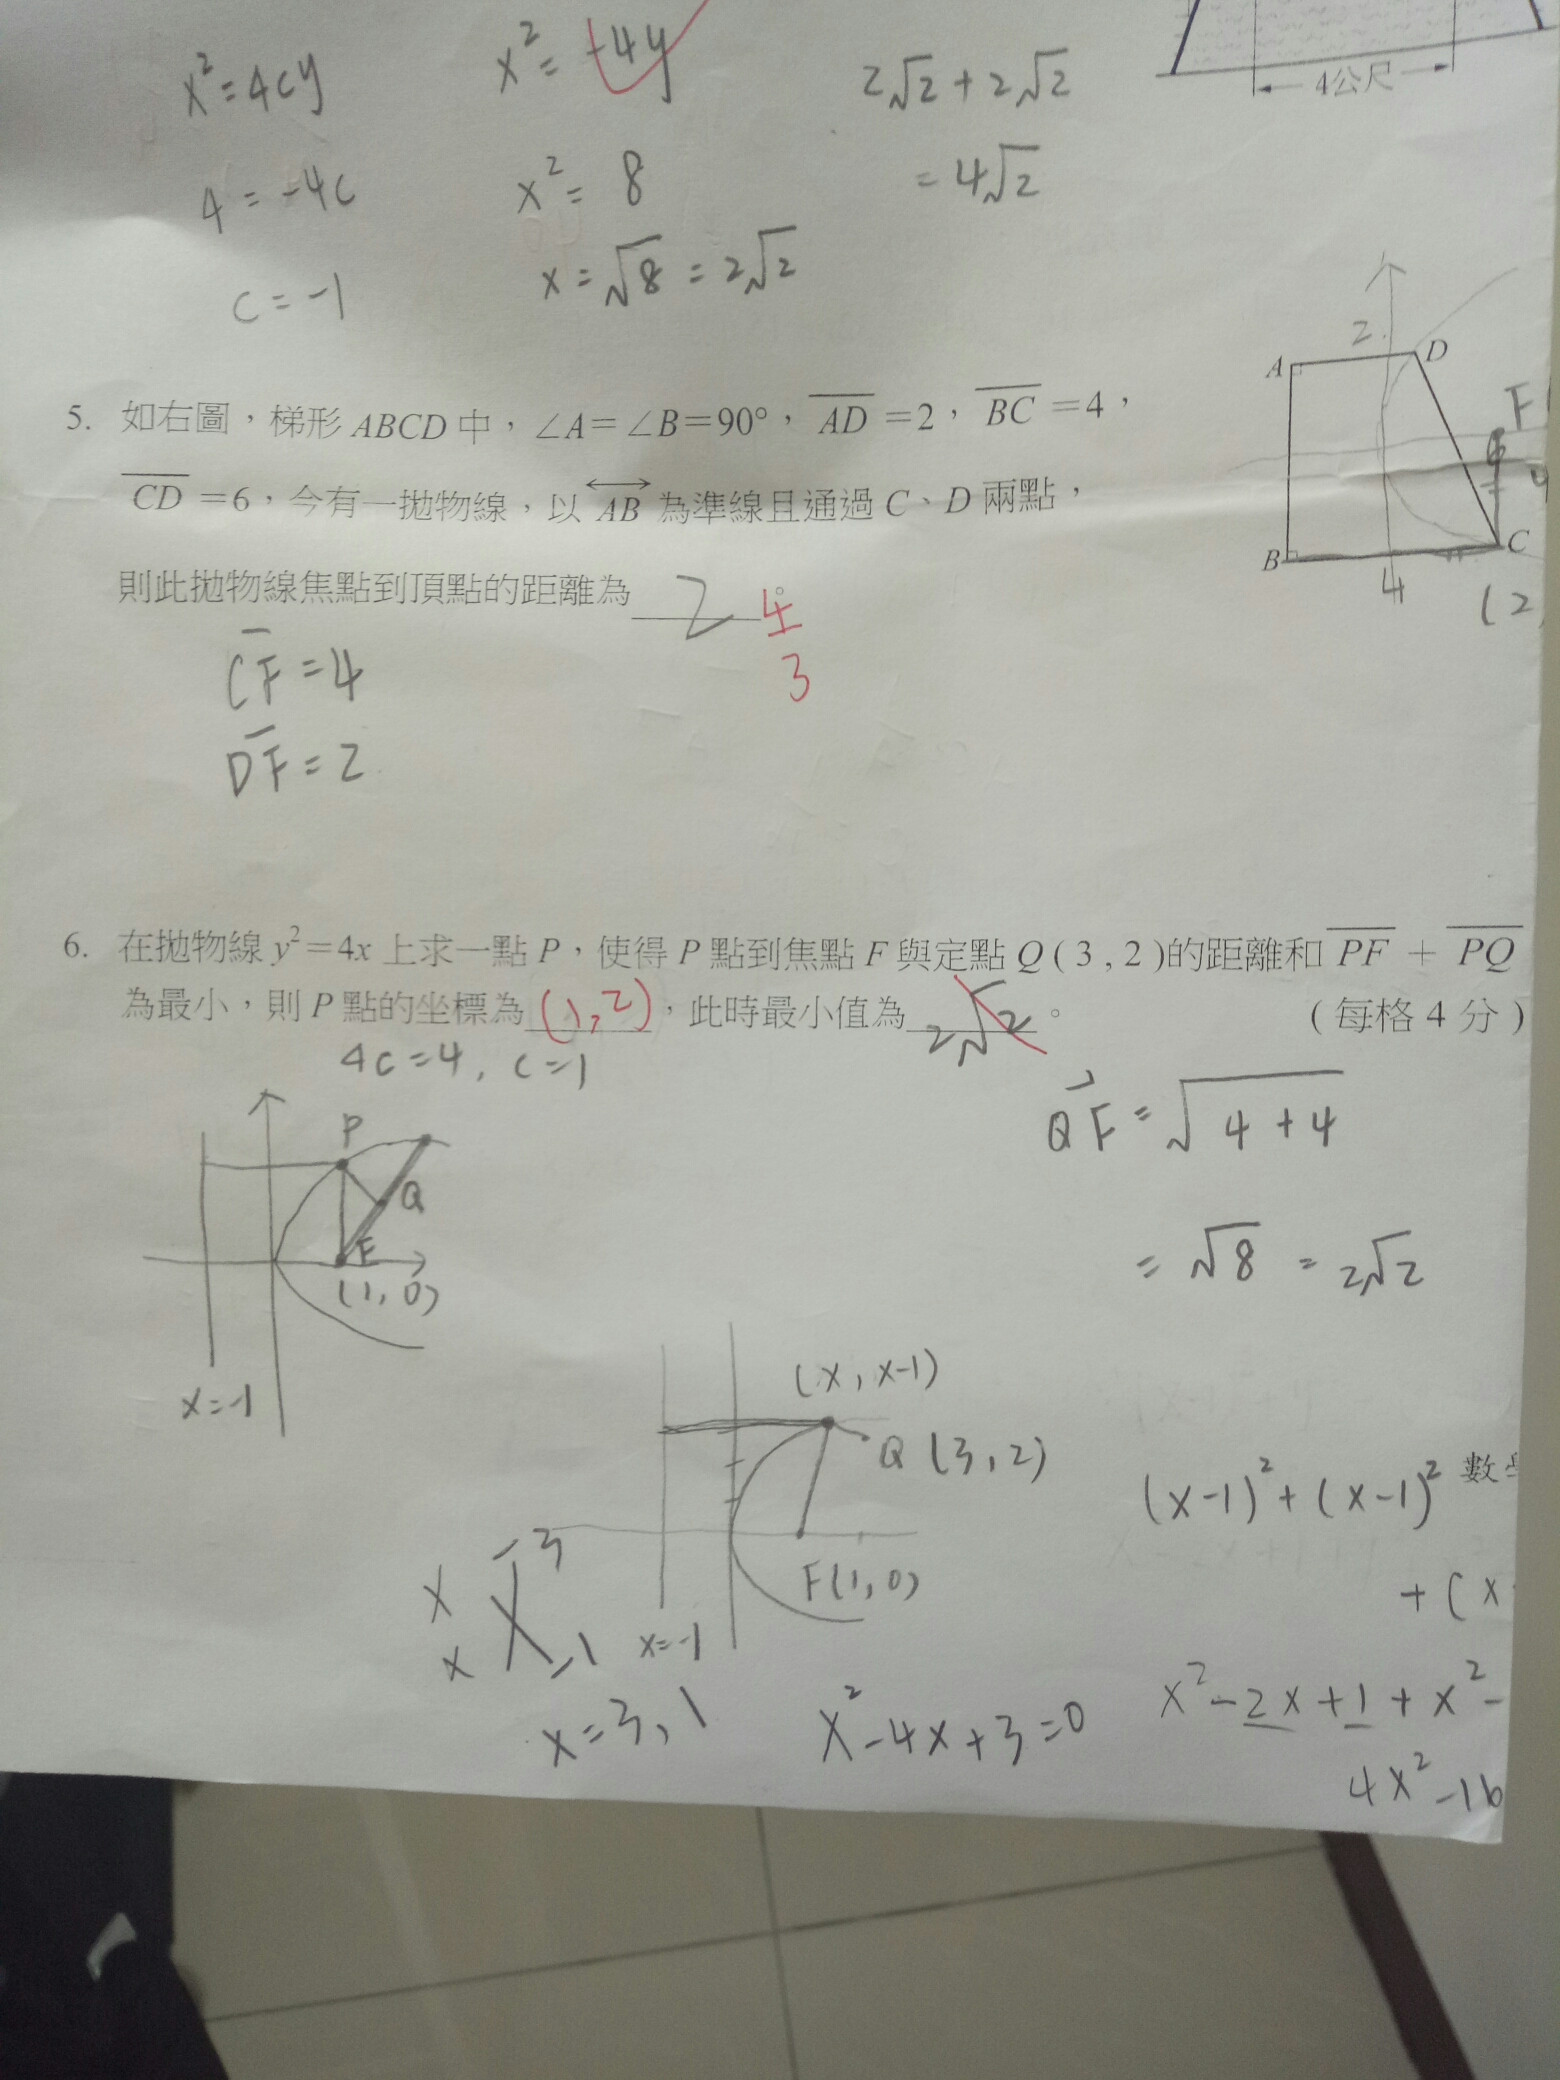 x²=4cy
x²= -4y
2√2+2√2
4公尺
4=-4c
x²= 8
=4√2
c=-1
x=√8=2√2
2
A
D
F
5. 如右圖，梯形 ABCD 中，∠A=∠B=90°，AD=2，BC=4，
CD=6，今有一拋物線，以 AB 為準線且通過 C、D 兩點，
B
C
4
(2
則此拋物線焦點到頂點的距離為 2 。
4
3
CF=4
DF=2
6. 在拋物線 y²=4x 上求一點 P，使得 P 點到焦點 F 與定點 Q(3,2)的距離和 PF + PQ
為最小，則 P 點的坐標為(1,2)，此時最小值為 2√2。 (每格 4 分)
4c=4, c=1
QF=√4+4
P
Q
F
(1,0)
=√8=2√2
x=-1
(x,x-1)
Q(3,2)
(x-1)²+(x-1)²
數
x -3
F(1,0)
+(x
x -1
x=-1
x=3,1
x²-4x+3=0
x²-2x+1+x²-
4x²-16